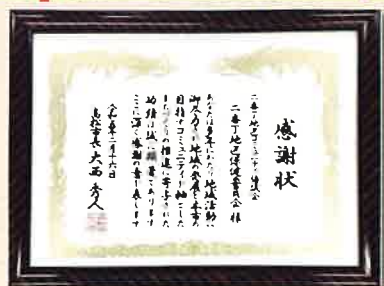 感謝状
二番丁地区コミュニティ協議会
二番丁地区保健委員会 様
あなたは多年にわたり地域活動に
御尽力され地域の発展と本市の
目指すコミュニティを軸とした
まちづくりの推進に寄与された
功績は誠に顕著であります
ここに深く感謝の意を表します
令和五年二月十六日
高松市長 大西秀人